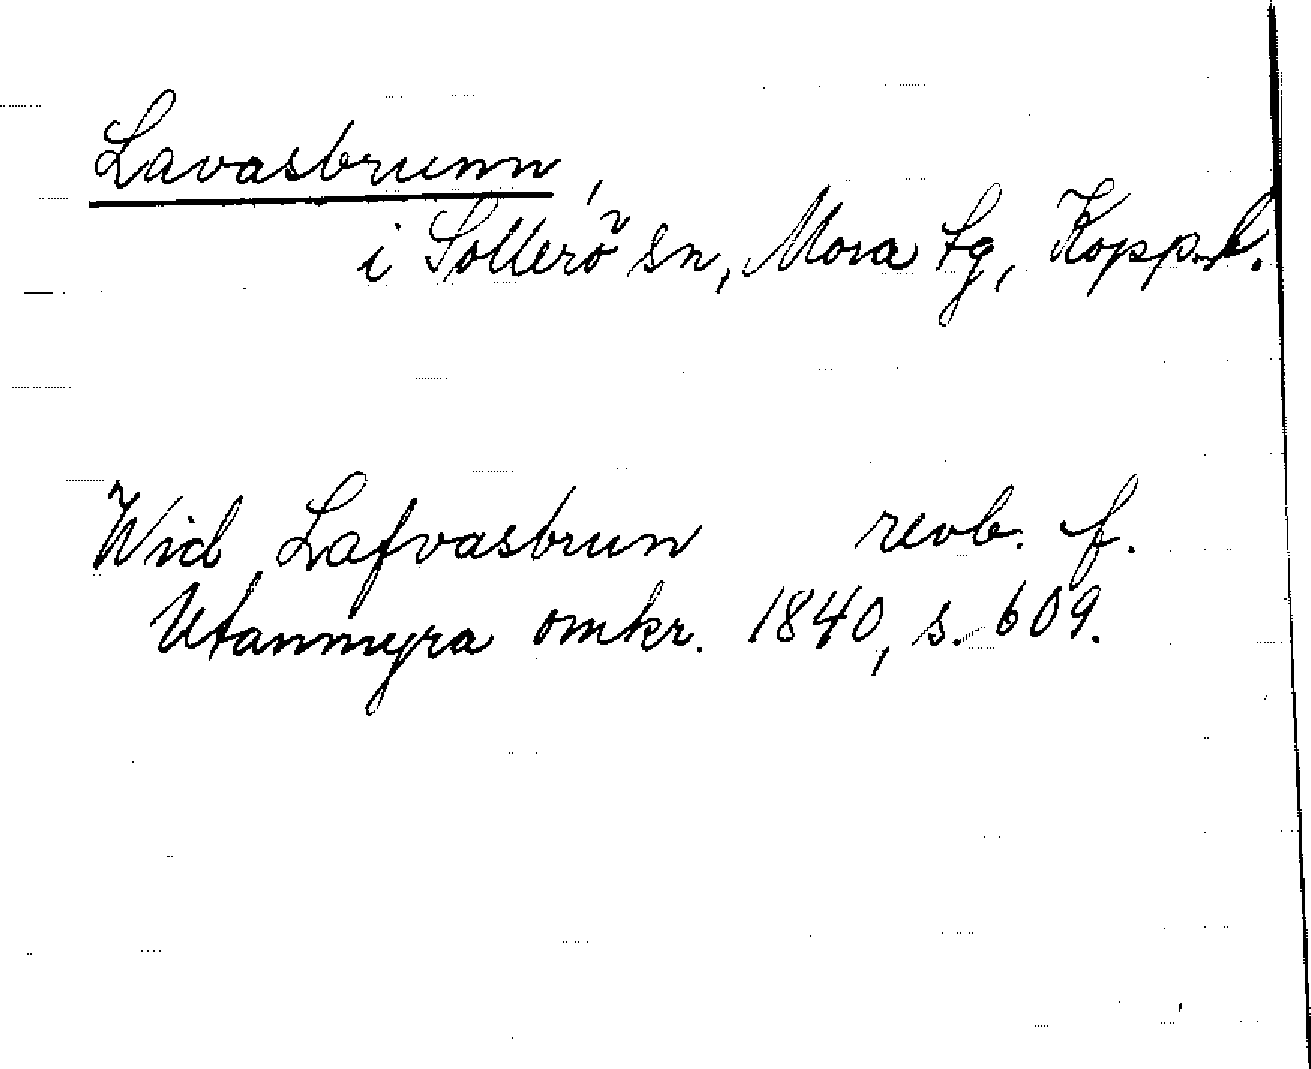 Lavasbrunn,
i Sollerö sn, Mora tg, Kopp. l.
Wid Lafvasbrun revb. f.
Utanmyra omkr. 1840, s. 609.